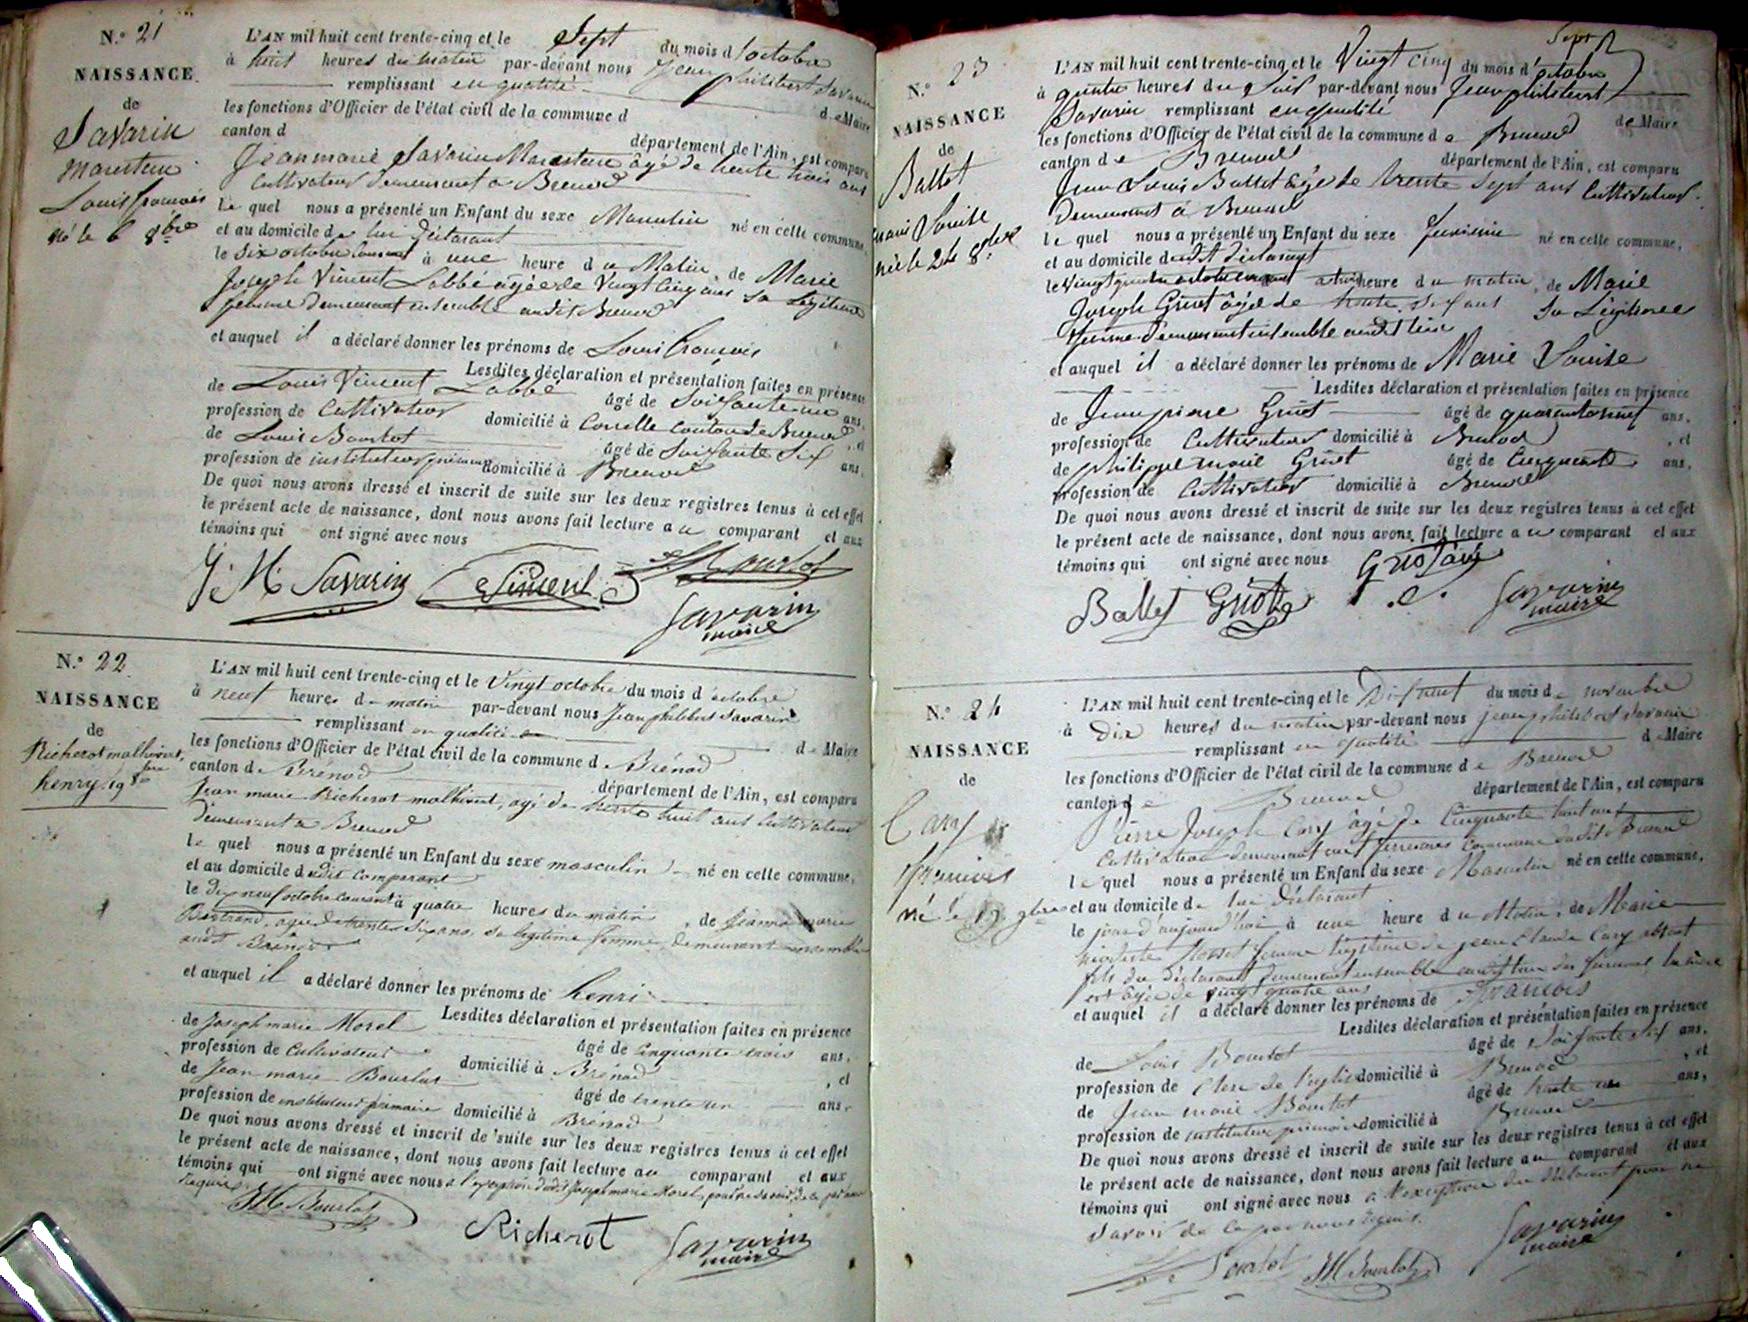 N.° 21
NAISSANCE
de
Savarin
Marestein
Louis françois
né le 6 8bre
L'AN mil huit cent trente-cinq et le Sept du mois d'octobre
à huit heures du matin par-devant nous Jean philibert Savarin
remplissant en qualité de Maire
les fonctions d'Officier de l'état civil de la commune d
canton d département de l'Ain, est comparu
Jean marie Savarin Marestein âgé de trente trois ans
Cultivateur demeurant à Brenod
Le quel nous a présenté un Enfant du sexe Masculin né en cette commune,
et au domicile de lui déclarant
le Six octobre courant à une heure du Matin, de Marie
Joseph Vincent Labbé âgée de Vingt Cinq ans Sa Légitime
femme demeurant ensemble audit Brenod
et auquel il a déclaré donner les prénoms de Louis françois
Lesdites déclaration et présentation faites en présence
de Louis Vincent Labbé âgé de Soixante-un ans,
profession de Cultivateur domicilié à Corcelle canton de Brenod, et
de Louis Bourlot âgé de Soixante Six ans,
profession de instituteur primaire domicilié à Brenod
De quoi nous avons dressé et inscrit de suite sur les deux registres tenus à cet effet
le présent acte de naissance, dont nous avons fait lecture au comparant et aux
témoins qui ont signé avec nous
J. M. Savarin Vincent Bourlot
Savarin
maire
N.° 22
NAISSANCE
de
Richerot malhivert,
henry, 19 8bre
L'AN mil huit cent trente-cinq et le Vingt octobre du mois d'octobre
à neuf heures du matin par-devant nous Jean philibert Savarin
remplissant en qualité de Maire
les fonctions d'Officier de l'état civil de la commune de Brénod
canton de Brénod département de l'Ain, est comparu
Jean marie Richerot malhivert, âgé de trente huit ans Cultivateur
demeurant à Brenod
Le quel nous a présenté un Enfant du sexe masculin né en cette commune,
et au domicile dudit comparant
le dix neuf octobre courant à quatre heures du matin, de Jeanne marie
Bertrand, agée de trente Six ans, sa légitime femme, demeurant ensemble
audit Brénod
et auquel il a déclaré donner les prénoms de henri
Lesdites déclaration et présentation faites en présence
de Joseph marie Morel âgé de cinquante trois ans,
profession de Cultivateur domicilié à Brénod, et
de Jean marie Bourlot âgé de trente un ans,
profession de instituteur primaire domicilié à Brénod
De quoi nous avons dressé et inscrit de suite sur les deux registres tenus à cet effet
le présent acte de naissance, dont nous avons fait lecture au comparant et aux
témoins qui ont signé avec nous à l'exception dudit Joseph marie Morel, pour ne savoir, de ce par nous
requis.
JM Bourlot
Richerot Savarin
maire
Sept
N.° 23
NAISSANCE
de
Ballet
marie Louise
née le 24 8bre
L'AN mil huit cent trente-cinq et le Vingt cinq du mois d'octobre
à quatre heures du Soir par-devant nous Jean philibert
Savarin remplissant en qualité de Maire
les fonctions d'Officier de l'état civil de la commune de Brenod
canton de Brenod département de l'Ain, est comparu
Jean Louis Ballet âgé de trente Sept ans Cultivateur
demeurant à Brenod
Le quel nous a présenté un Enfant du sexe féminin né en cette commune,
et au domicile dudit déclarant
le Vingt quatre octobre courant heure du matin, de Marie
Joseph Griot âgée de trente six ans Sa Légitime
femme demeurant ensemble audit lieu
et auquel il a déclaré donner les prénoms de Marie Louise
Lesdites déclaration et présentation faites en présence
de Jean pierre Griot âgé de quarante neuf ans,
profession de Cultivateur domicilié à Brenod, et
de philippe marie Griot âgé de Cinquante ans,
profession de Cultivateur domicilié à Brenod
De quoi nous avons dressé et inscrit de suite sur les deux registres tenus à cet effet
le présent acte de naissance, dont nous avons fait lecture au comparant et aux
témoins qui ont signé avec nous
Ballet Griot Savarin
maire
N.° 24
NAISSANCE
de
Cary
françois
né le 19 9bre
L'AN mil huit cent trente-cinq et le Dix neuf du mois de novembre
à Dix heures du matin par-devant nous jean philibert Savarin
remplissant en qualité de Maire
les fonctions d'Officier de l'état civil de la commune de Brenod
canton de Brenod département de l'Ain, est comparu
Pierre Joseph Cary âgé de Cinquante huit ans
Cultivateur demeurant commune dudit Brenod
le quel nous a présenté un Enfant du sexe Masculin né en cette commune,
et au domicile de lui déclarant
le jour d'aujourd'hui à une heure du Matin, de Marie
femme légitime de jean Claude Cary absent
fils du déclarant demeurant ensemble la mère
est âgée de vingt quatre ans
et auquel il a déclaré donner les prénoms de françois
Lesdites déclaration et présentation faites en présence
de Louis Bourlot âgé de Soixante Six ans,
profession de Clerc de l'église domicilié à Brenod, et
de Jean marie Bourlot âgé de trente un ans,
profession de instituteur primaire domicilié à Brenod
De quoi nous avons dressé et inscrit de suite sur les deux registres tenus à cet effet
le présent acte de naissance, dont nous avons fait lecture au comparant et aux
témoins qui ont signé avec nous à l'exception du déclarant pour ne
savoir de ce par nous requis.
Bourlot JM Bourlot Savarin
maire